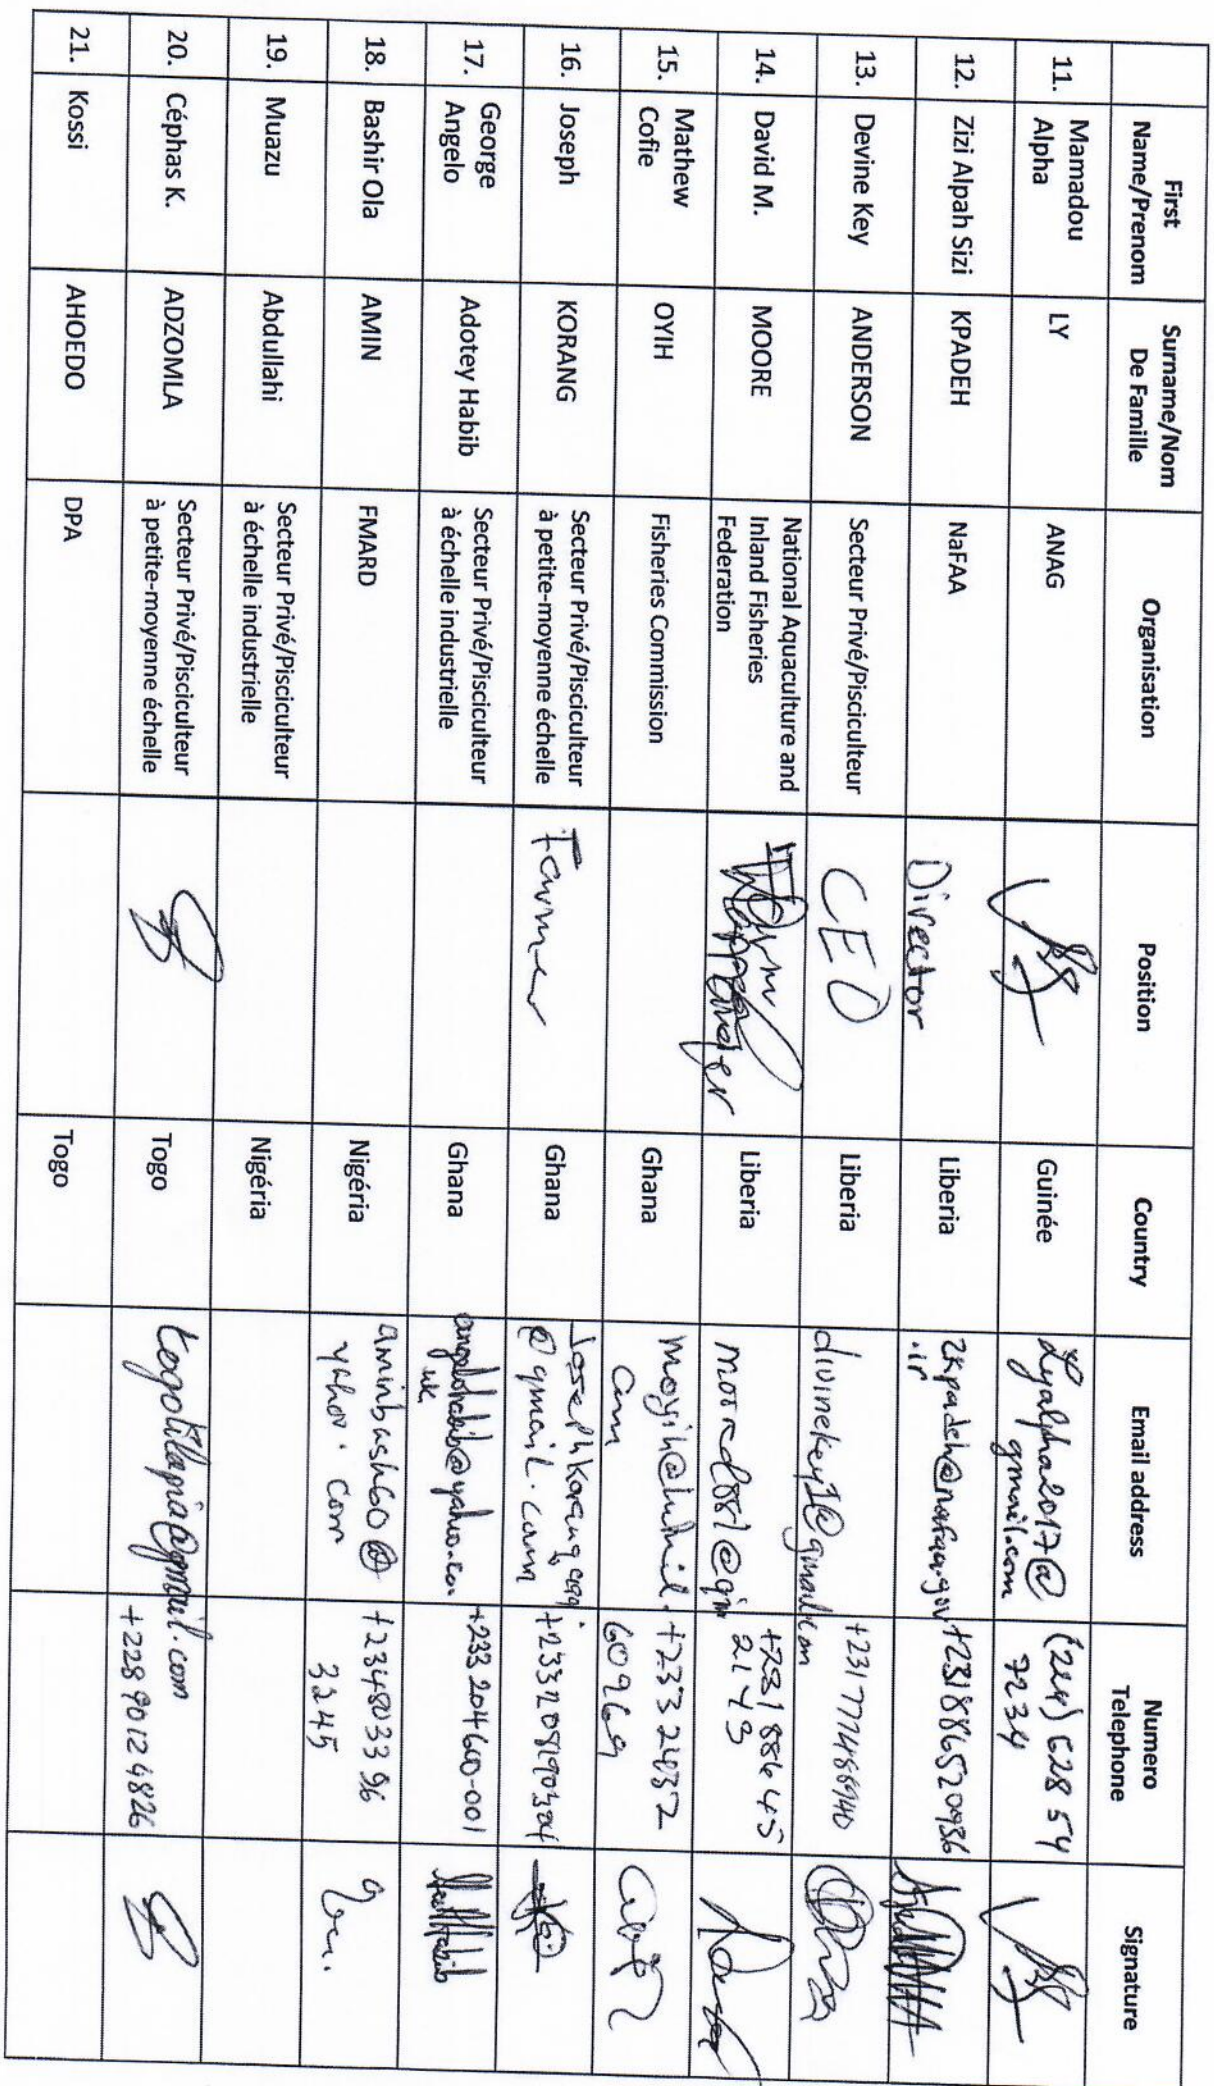 First Name/Prenom Surname/Nom De Famille Organisation Position Country Email address Numero Telephone Signature
11. Mamadou Alpha LY ANAG Guinée Lyalpha2017@gmail.com (224) 628 54 7234
12. Zizi Alpah Sizi KPADEH NaFAA Director Liberia zkpadeh@nafaa.gov
13. Devine Key ANDERSON Secteur Privé/Pisciculteur CEO Liberia divinekey1@gmail.com
14. David M. MOORE National Aquaculture and Inland Fisheries Federation Liberia
15. Mathew Cofie OYIH Fisheries Commission Ghana
16. Joseph KORANG Secteur Privé/Pisciculteur à petite-moyenne échelle Farmer Ghana
17. George Angelo Adotey Habib Secteur Privé/Pisciculteur à échelle industrielle Ghana +233 204600-001
18. Bashir Ola AMIN FMARD Nigéria aminbash60@yahoo.com +234803396 3245
19. Muazu Abdullahi Secteur Privé/Pisciculteur à échelle industrielle Nigéria
20. Céphas K. ADZOMLA Secteur Privé/Pisciculteur à petite-moyenne échelle Togo togotilapia@gmail.com +228 90124826
21. Kossi AHOEDO DPA Togo